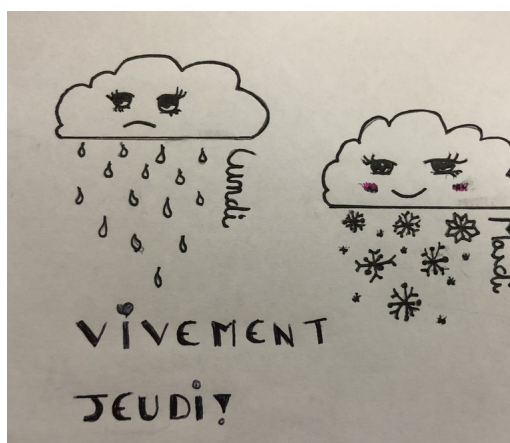 Lundi
Mardi
VIVEMENT
JEUDI!